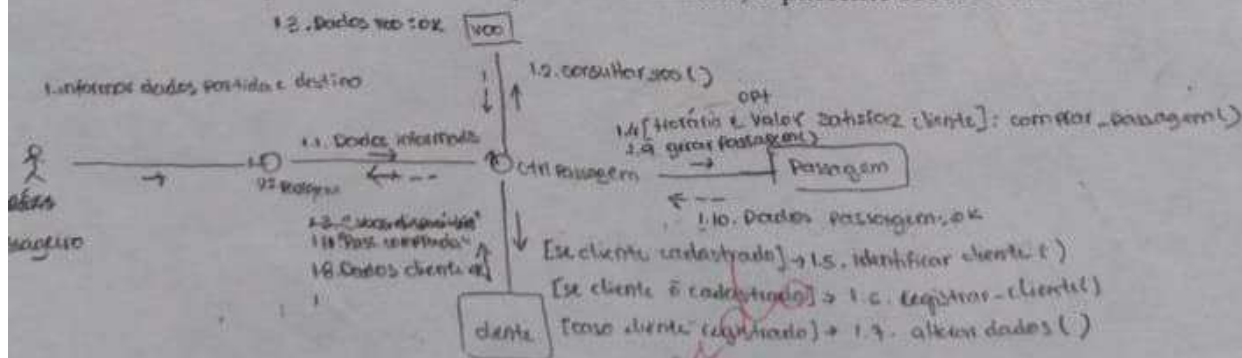 1.3. Dados voo : OK
voo
1. informar dados partida e destino
1.2. consultar_voo ()
opt
1.4 [Horário e valor satisfaz cliente]: comprar_passagem()
1.9 gerar passagem()
1.1. Dados informados
Ctrl Passagem
Passagem
1.10. Dados passagem, OK
1.11 "Pass comprada"
1.8. Dados cliente
[se cliente cadastrado] → 1.5. identificar cliente ()
[se cliente ñ cadastrado] → 1.6. registrar_cliente()
cliente
[caso cliente registrado] → 1.7. alterar dados ()